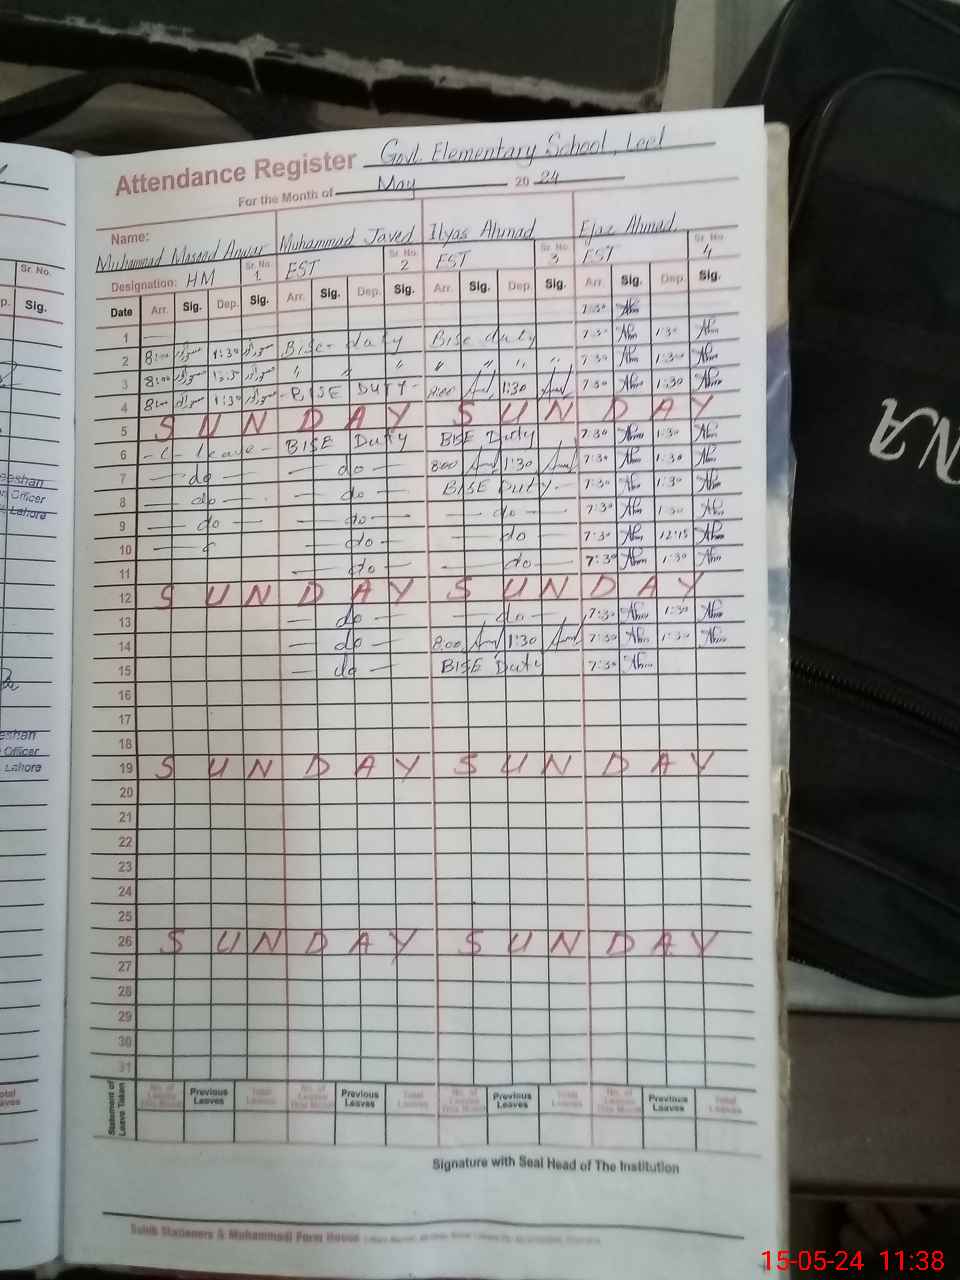 Attendance Register Govt. Elementary School, Leel
For the Month of May 20 24
Name: Muhammad Masood Anwar Muhammad Javed Ilyas Ahmad Ejaz Ahmad.
Designation: HM Sr. No. 1 EST Sr. No. 2 EST Sr. No. 3 EST Sr. No. 4
Date Arr. Sig. Dep. Sig. Arr. Sig. Dep. Sig. Arr. Sig. Dep. Sig. Arr. Sig. Dep. Sig.
1 7:30
2 8:00 1:30 Bise- duty Bise duty 7:30 1:30
3 8:00 〃 〃 〃 〃 〃 〃 〃 7:30 1:30
4 8:00 1:30 - BISE DUTY - 8:00 1:30 7:30 1:30
5 S U N D A Y S U N D A Y
6 - C - leave - BISE Duty BISE Duty 7:30 1:30
7 — do — — do — 8:00 1:30 7:30 1:30
8 — do — — do — BISE Duty - 7:30 1:30
9 — do — — do — — do — 7:30 1:30
10 — do — — do 7:30 12:15
11 — do — — do — 7:30 1:30
12 S U N D A Y S U N D A Y
13 — do — — do — 7:30 1:30
14 — do — 8:00 1:30 7:30 1:30
15 — do — BISE Duty 7:30
16
17
18
19 S U N D A Y S U N D A Y
20
21
22
23
24
25
26 S U N D A Y S U N D A Y
27
28
29
30
31
Statement of Leave Taken No. of Leaves This Month Previous Leaves Total Leaves No. of Leaves This Month Previous Leaves Total Leaves No. of Leaves This Month Previous Leaves Total Leaves No. of Leaves This Month Previous Leaves Total Leaves
Signature with Seal Head of The Institution
Sr. No.
Sig.
Officer
Lahore
Officer
Lahore
NA
15-05-24 11:38